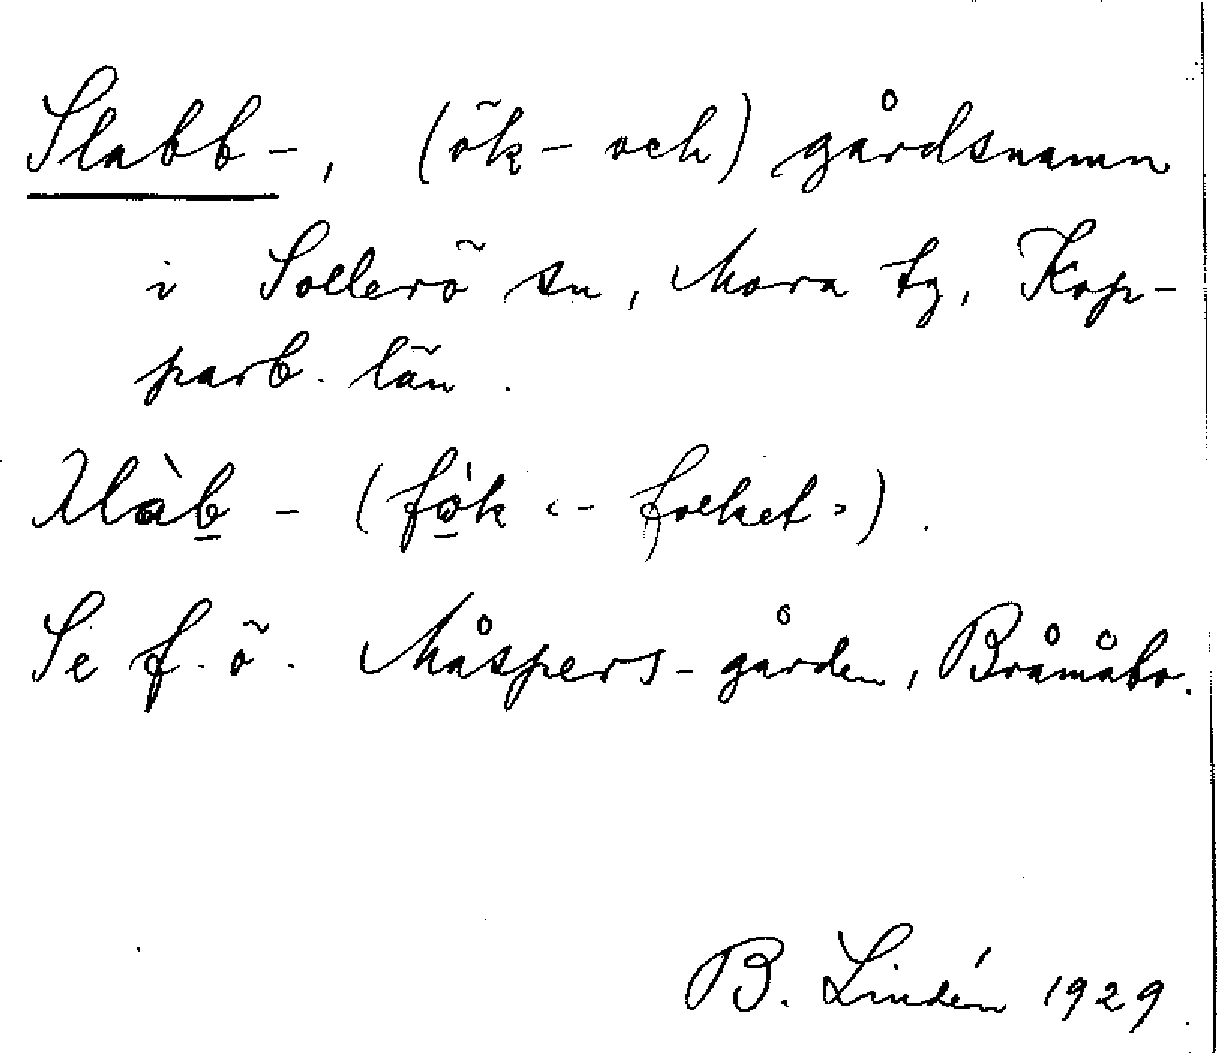 Slabb-, (ök- och) gårdsnamn
i Sollerö sn, Mora tg, Kop-
parb. län.
(fò̱k <-folket>).
Se f. ö. Måspers-gården, Bråmåbo.
B. Lindén 1929